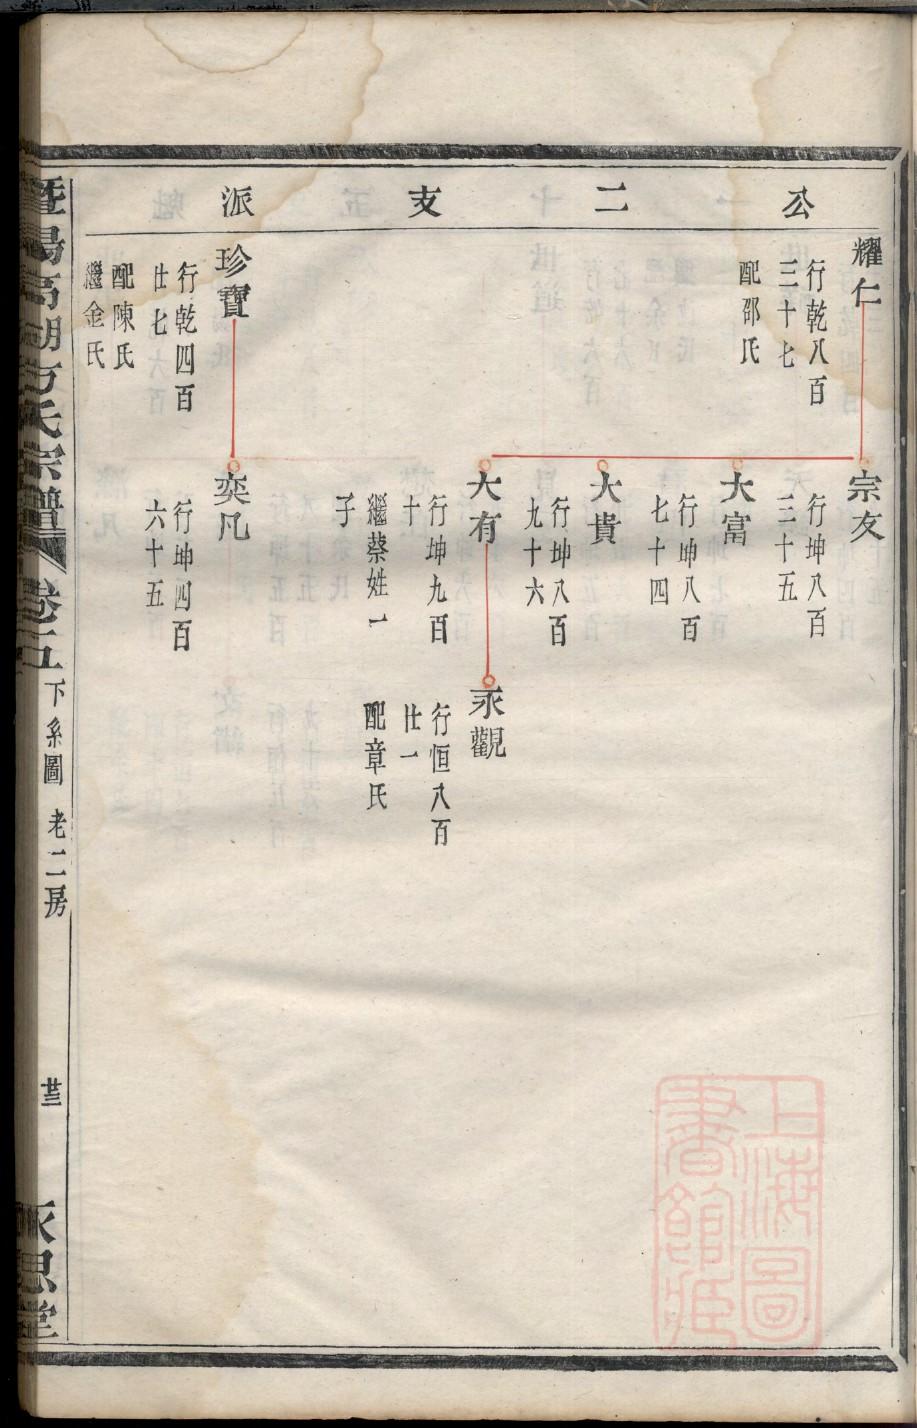 公二支派
耀仁
行乾八百
三十七
配邵氏
宗友
行坤八百
三十五
大富
行坤八百
七十四
大貴
行坤八百
九十六
大有
行坤九百
十
繼蔡姓一
子
永觀
行恒八百
廿一
配章氏
珍寶
行乾四百
廿七
配陳氏
繼金氏
奕凡
行坤四百
六十五
暨陽高湖方氏宗譜
卷五
下系圖
老二房
廿三
永思堂
上海圖
書館藏